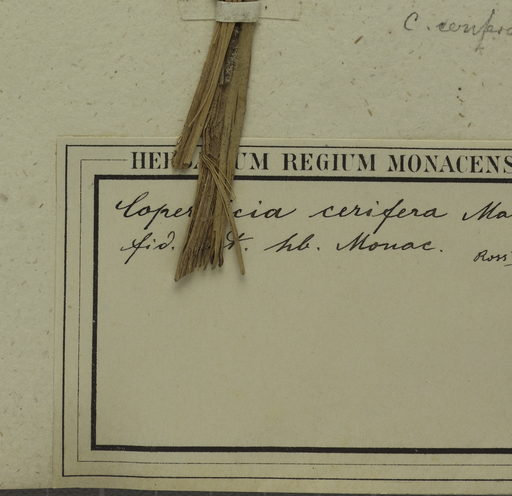 C. cerifera
HERBARIUM REGIUM MONACENS
Copernicia cerifera Ma
fid. hb. Monac.
Ross